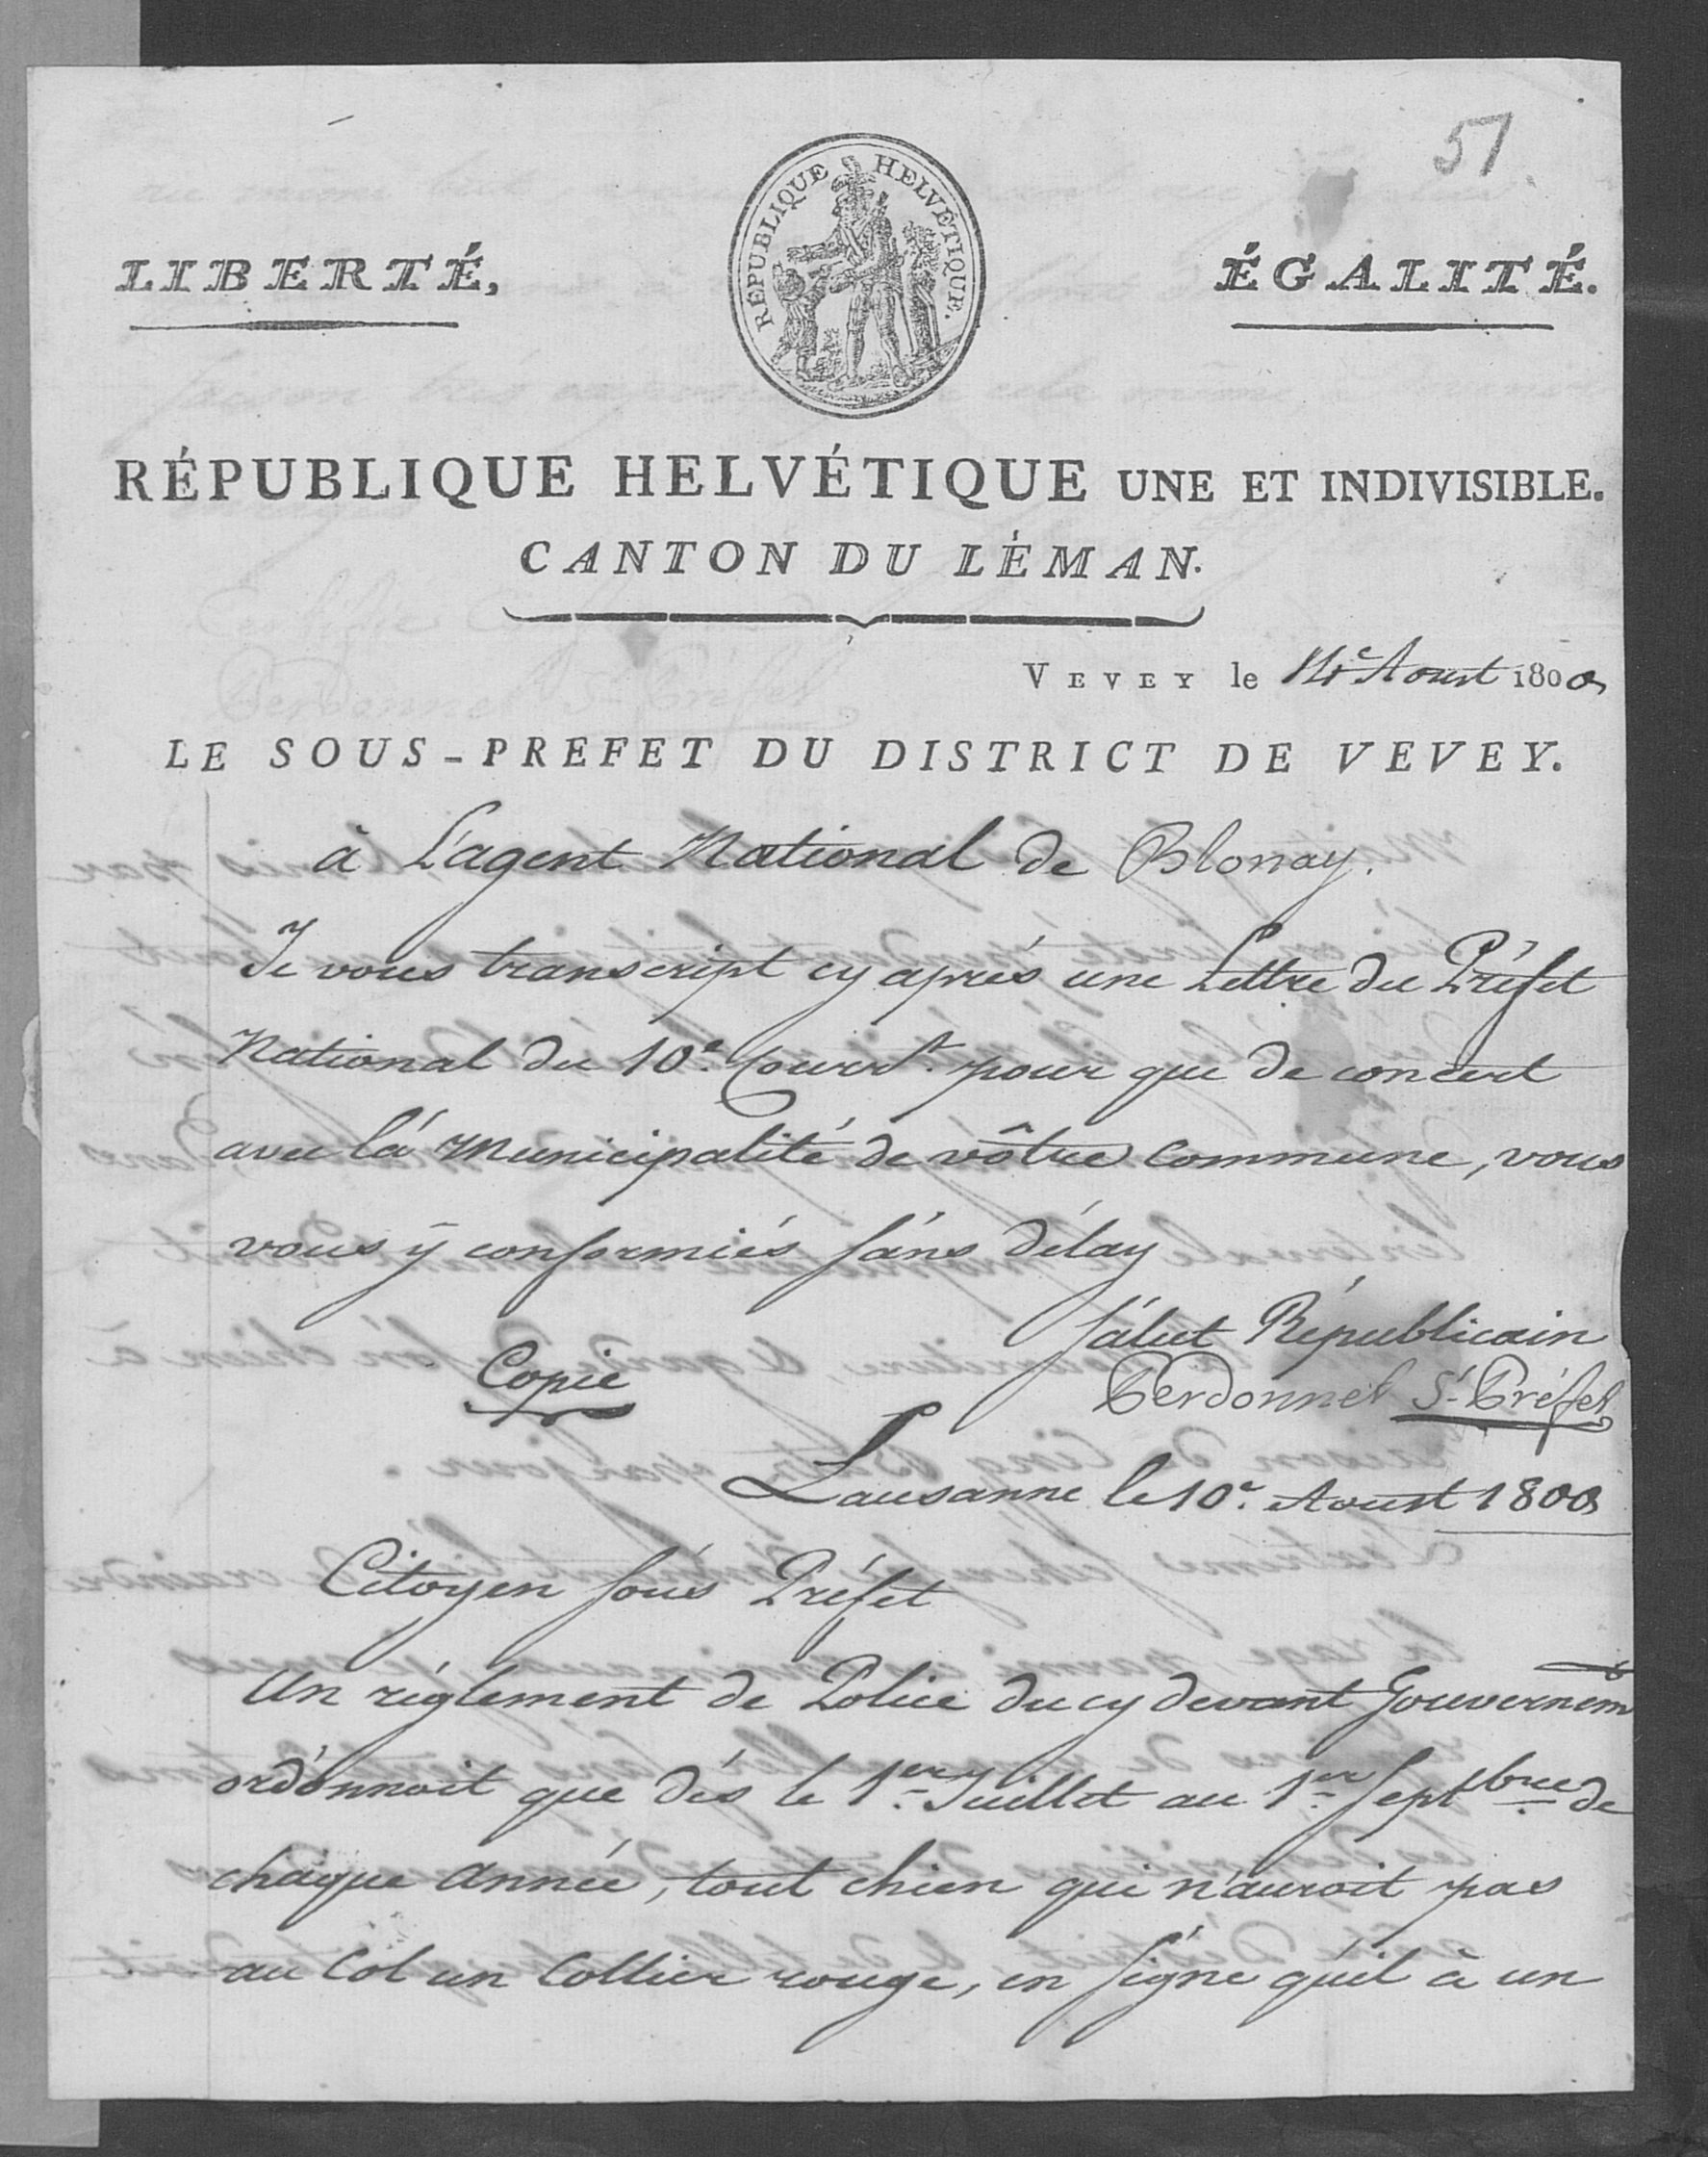 51.
LIBERTÉ,
RÉPUBLIQUE HELVÉTIQUE.
ÉGALITÉ.
RÉPUBLIQUE HELVÉTIQUE UNE ET INDIVISIBLE.
CANTON DU LÉMAN.
VEVEY le 14e Aoust 1800
LE SOUS-PREFET DU DISTRICT DE VEVEY.
à L'agent National de Blonay.
Je vous transcript cy aprés une Lettre du Préfet
National du 10e. Courrt. pour que de concert
avec la Municipalité de vôtre Commune, vous
vous ÿ conformiés sans délay
Salut Républicain
Perdonnet S-Préfet
Copie
Lausanne le 10e. Aoust 1800
Citoyen sous Préfet
Un réglement de Police du cy devant Gouvernemt
ordonnoit que dés le 1er Juillet au 1er Septbre de
chaque année, tout chien qui n'auroit pas
au Col un Collier rouge, en signe qu'il à un